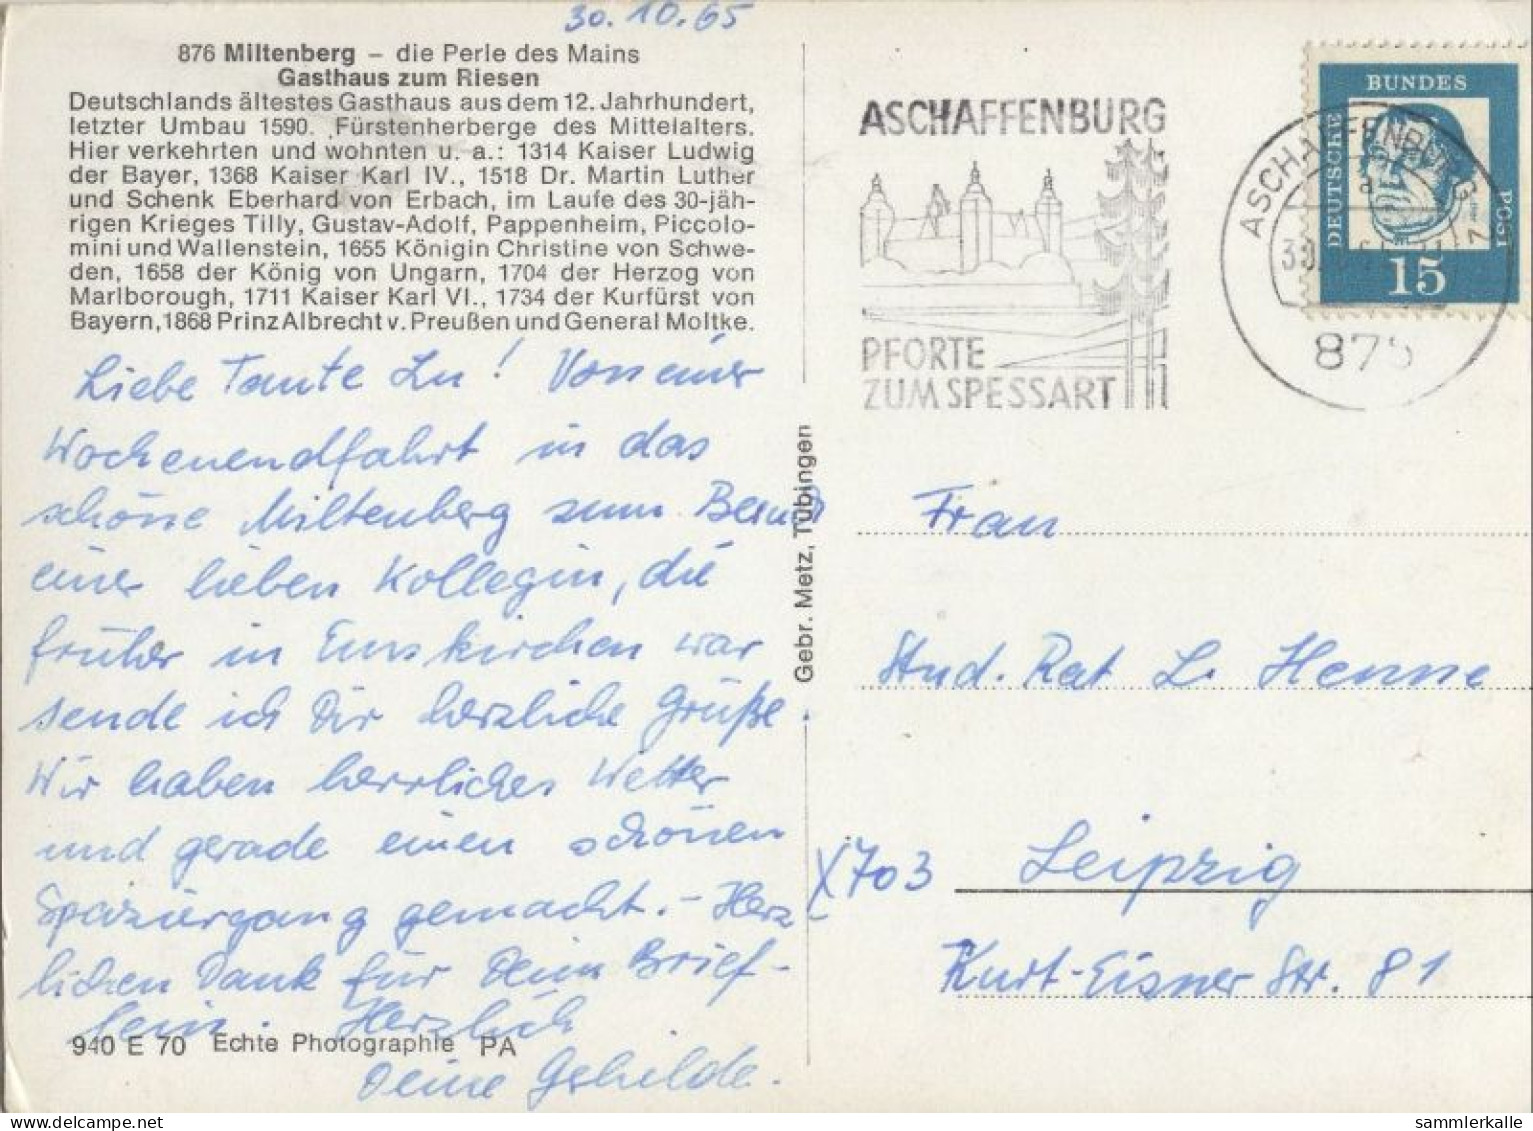 30.10.65
876 Miltenberg – die Perle des Mains
Gasthaus zum Riesen
Deutschlands ältestes Gasthaus aus dem 12. Jahrhundert,
letzter Umbau 1590. Fürstenherberge des Mittelalters.
Hier verkehrten und wohnten u. a.: 1314 Kaiser Ludwig
der Bayer, 1368 Kaiser Karl IV., 1518 Dr. Martin Luther
und Schenk Eberhard von Erbach, im Laufe des 30-jäh-
rigen Krieges Tilly, Gustav-Adolf, Pappenheim, Piccolo-
mini und Wallenstein, 1655 Königin Christine von Schwe-
den, 1658 der König von Ungarn, 1704 der Herzog von
Marlborough, 1711 Kaiser Karl VI., 1734 der Kurfürst von
Bayern, 1868 Prinz Albrecht v. Preußen und General Moltke.
Liebe Tante Lu! Von einer
Wochenendfahrt in das
schöne Miltenberg zum Besuch
einer lieben Kollegin, die
früher in Emskirchen war
sende ich Dir herzliche Grüße.
Wir haben herrliches Wetter
und gerade einen schönen
Spaziergang gemacht. – Herz
lichen Dank für Dein Brief-
lein. Herzlich
Deine Gehilde.
940 E 70 Echte Photographie PA
Gebr. Metz, Tübingen
ASCHAFFENBURG
PFORTE
ZUM SPESSART
ASCHAFFENBURG 1
a
875
DEUTSCHE
BUNDES
POST
15
Frau
Stud. Rat L. Henne
X703 Leipzig
Kurt-Eisner Str. 81
sammlerkalle